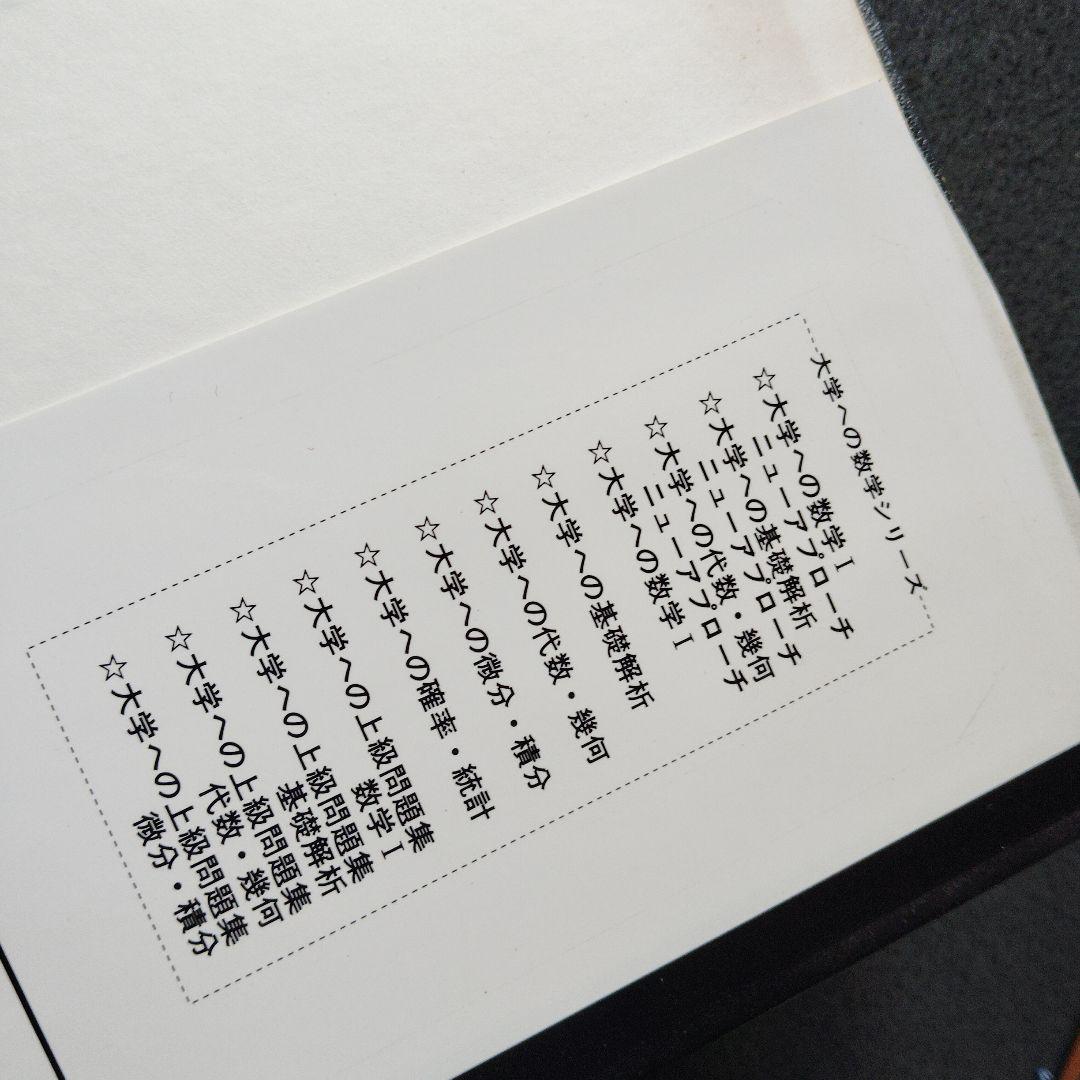 大学への数学シリーズ
☆大学への数学Ⅰ
ニューアプローチ
☆大学への基礎解析
ニューアプローチ
☆大学への代数・幾何
ニューアプローチ
☆大学への数学Ⅰ
☆大学への基礎解析
☆大学への代数・幾何
☆大学への微分・積分
☆大学への確率・統計
☆大学への上級問題集
数学Ⅰ
☆大学への上級問題集
基礎解析
☆大学への上級問題集
代数・幾何
☆大学への上級問題集
微分・積分